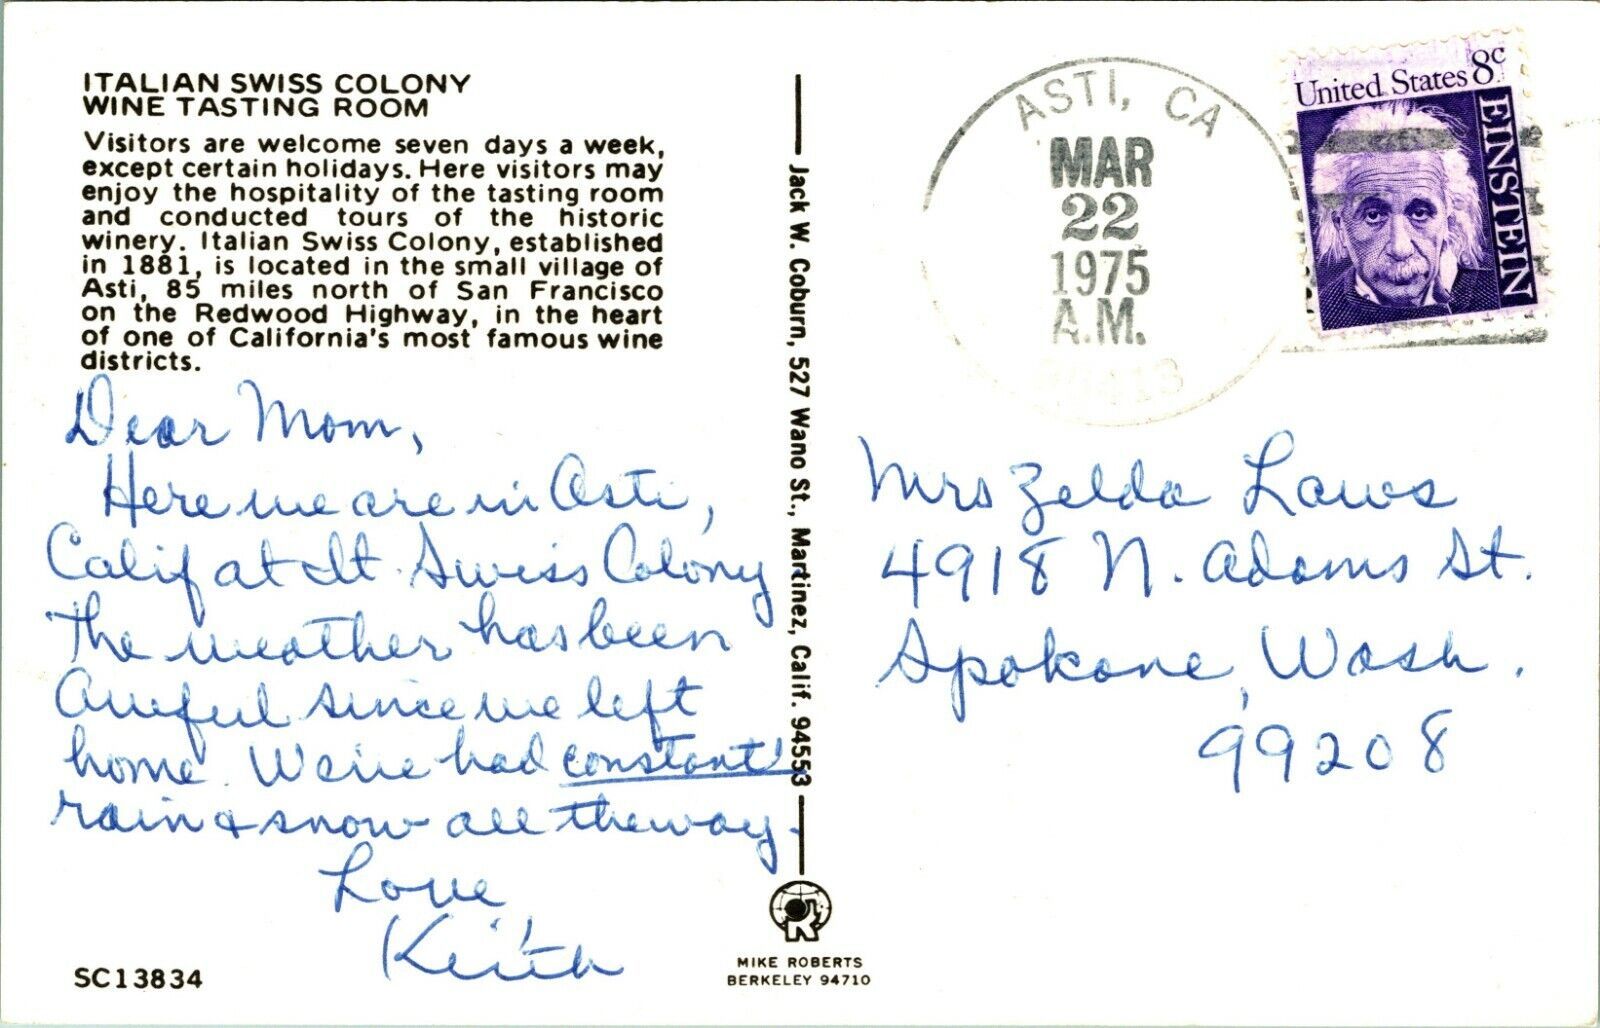 ITALIAN SWISS COLONY
WINE TASTING ROOM
Visitors are welcome seven days a week,
except certain holidays. Here visitors may
enjoy the hospitality of the tasting room
and conducted tours of the historic
winery. Italian Swiss Colony, established
in 1881, is located in the small village of
Asti, 85 miles north of San Francisco
on the Redwood Highway, in the heart
of one of California's most famous wine
districts.
Dear Mom,
Here we are in Asti,
Calif at It. Swiss Colony
The weather has been
Awful since we left
home. We've had constant
rain & snow all the way.
Love
Keith
SC13834
Jack W. Coburn, 527 Wano St., Martinez, Calif. 94553
MIKE ROBERTS
BERKELEY 94710
ASTI, CA
MAR
22
1975
A.M.
United States 8c
EINSTEIN
Mrs Zelda Laws
4918 N. Adams St.
Spokane, Wash.
99208